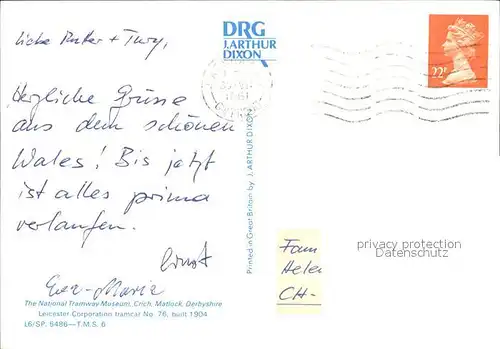 DRG
J. ARTHUR
DIXON
22P
Herzliche Grüsse
aus dem schönen
Wales! Bis jetzt
ist alles prima
verlaufen.
Ernst
Eva-Maria
Printed in Great Britain by J. ARTHUR DIXON
Fam
Helen
CH-
privacy protection
Datenschutz
The National Tramway Museum, Crich, Matlock, Derbyshire
Leicester Corporation tramcar No. 76, built 1904
L6/SP. 9486—T.M.S. 6